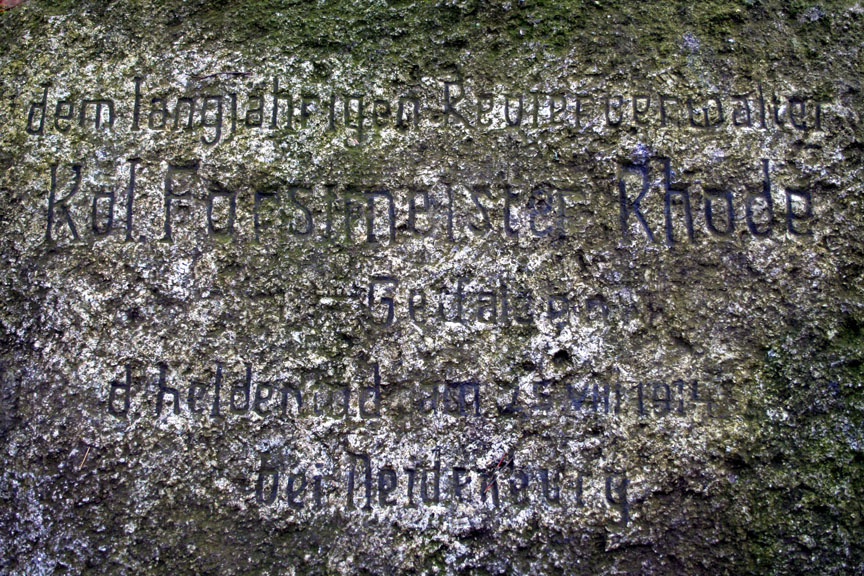 dem langjährigen Revierverwalter
Kgl Forstmeister Rhode
d heldentod am VIII 1914
bei Neidenburg